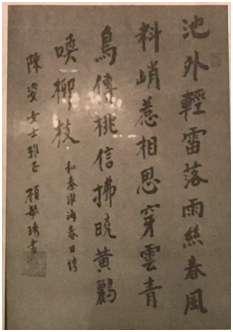 池外輕雷落雨絲春風
料峭惹相思穿雲青
鳥傳桃信拂曉黃鸝
喚柳枝 和秦淮海春日詩
陳姿女士雅正 顧毓琇書